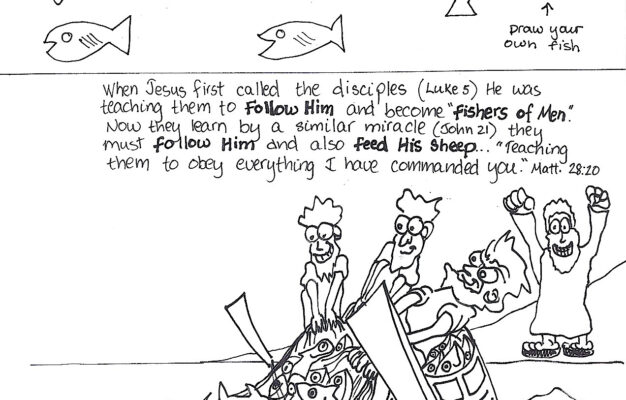 draw your
own fish
When Jesus first called the disciples (Luke 5) He was
teaching them to Follow Him and become "fishers of Men."
Now they learn by a similar miracle (John 21) they
must follow Him and also feed His Sheep... "Teaching
them to obey everything I have commanded you." Matt. 28:20